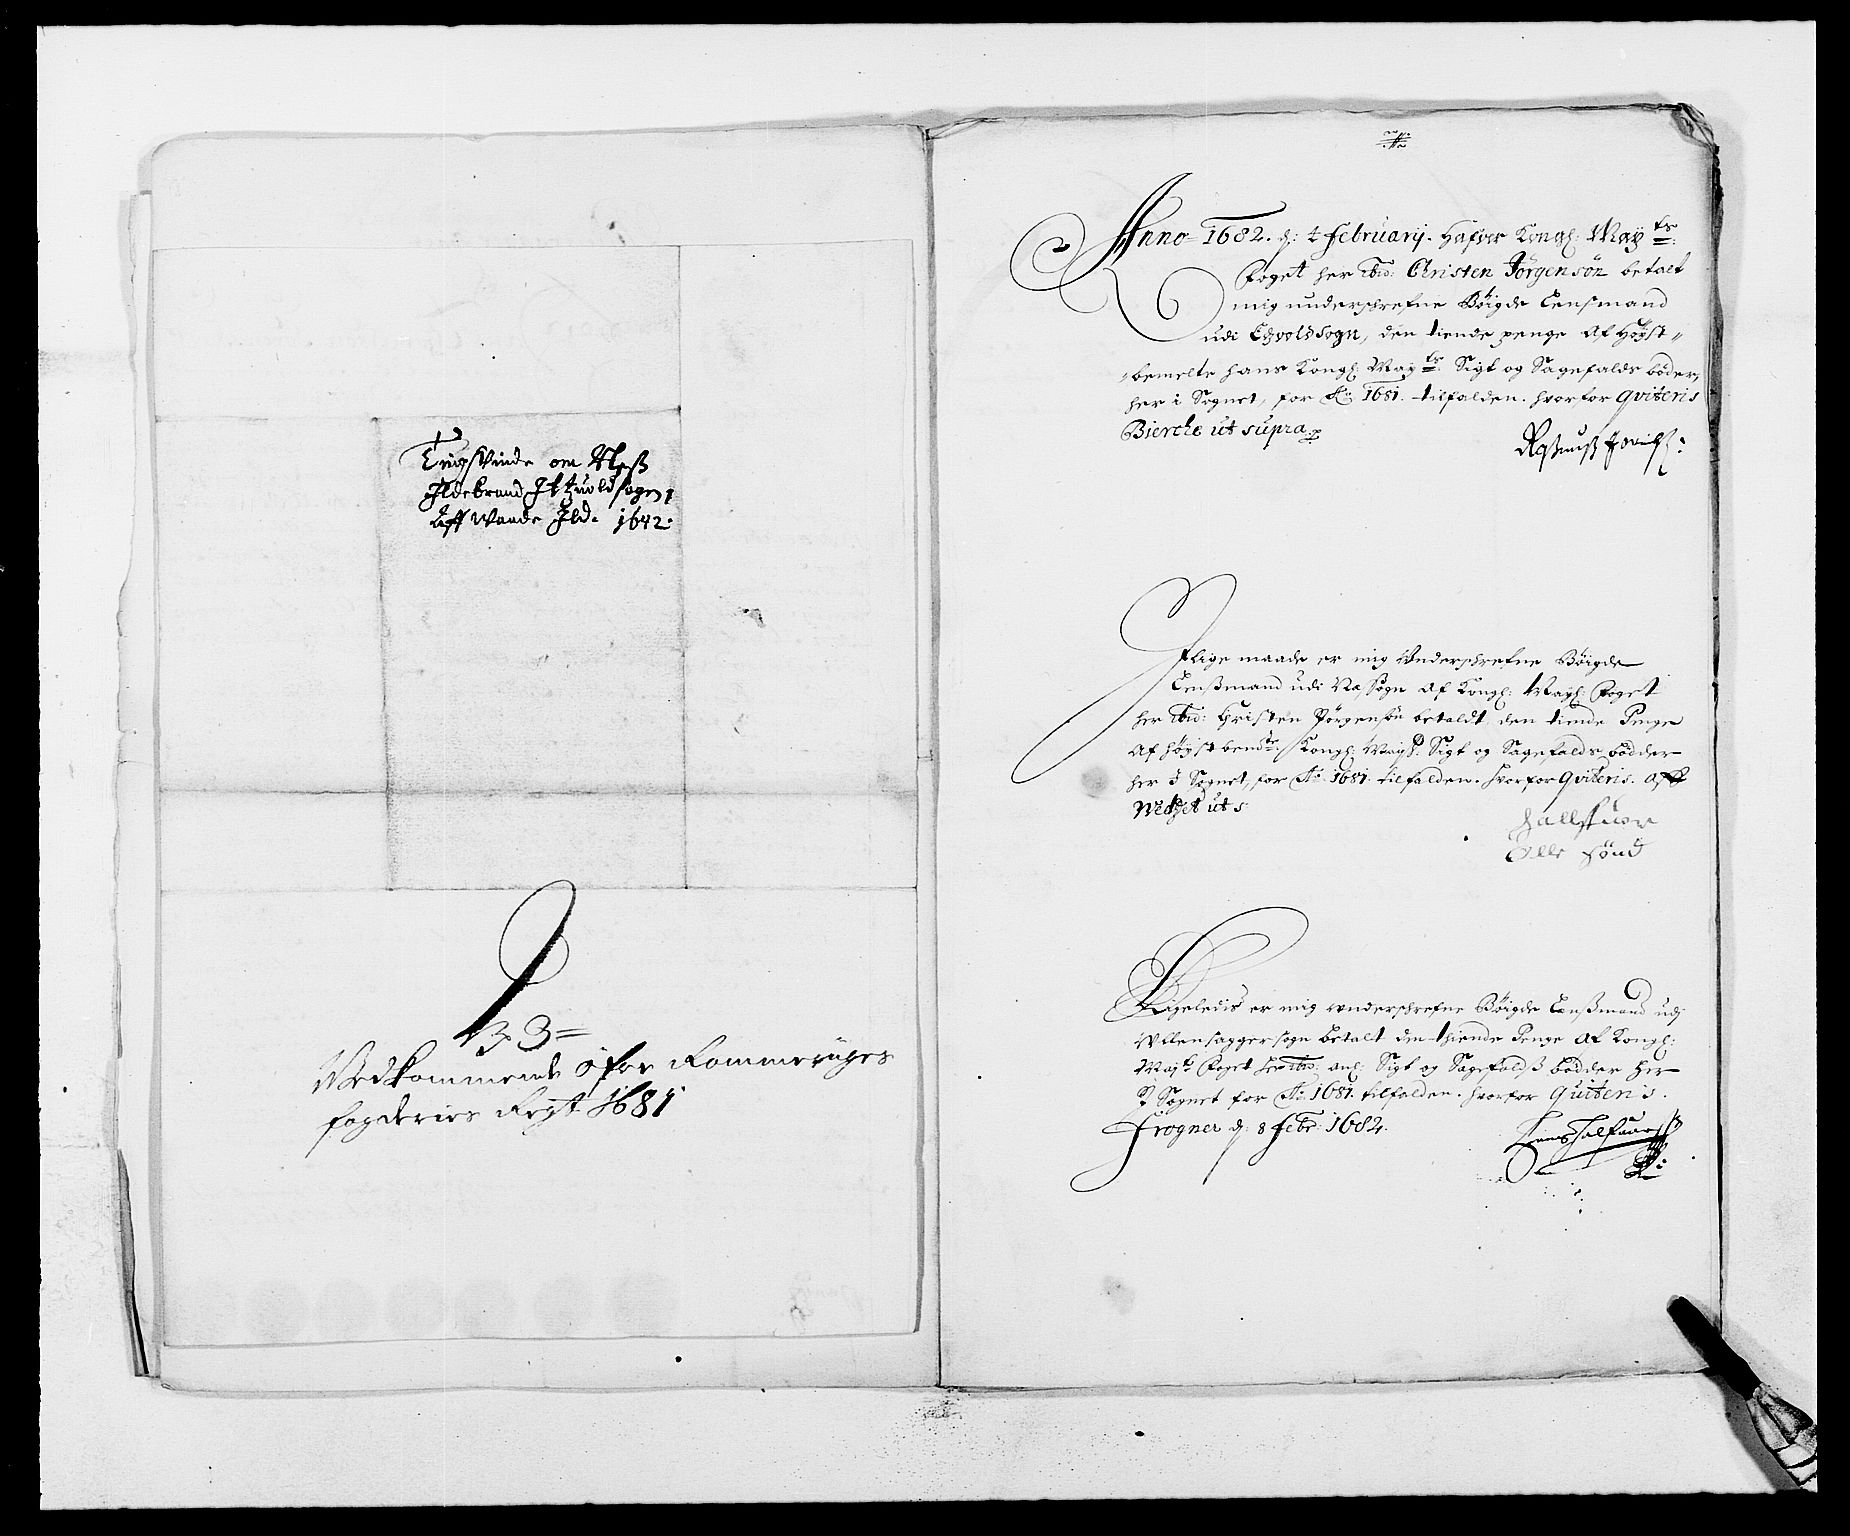 Tingsvinde om Néß
Ildebrand I Etzuold sogen
Aff Waade Ild. 1682.
No 33=
Vedkommende ofver Rommeriges
fogderies Regst 1681
Anno 1682. d: 4 February. Hafver Kongl: May^ts:
Foget her ibid: Christen Jörgensön betalt
mig underschrefne Böigde Lensmand
udi Edzvold Sogn, den tiende penge Af Höyst-
bemelte hans Kongl: May^ts: Sigt og Sagefalds böder,
her i Sognet, for Ao: 1681. tilfalden. hvorfor qviteris
Bierche ut supra
I lige maade er mig Underschrefne Böigde
Lenßmand udi Næs Sogn Af Kongl: Mayt: Foget
her ibid: Christen Jörgensön betaldt, den tiende Penge
Af höyst bem^te: Kongl: Mayts: Sigt og Sagefalds bödder
her I Sognet, for Ao: 1681. tilfalden. hvorfor qviteris. Aff
ut s:
Hallsteen
Olle sönd
Ligeledis er mig underschrefne Böigde Lenßmand udj
Ullensagger sogn betalt den thiende Penge Af Kongl:
May^ts Foget her ibid: anl: Sigt og Sagefaldß bödder her
I Sognet for Ao: 1681. tilfalden. hvorfor Quiteris.
Frogner d: 8 Febr: 1682.